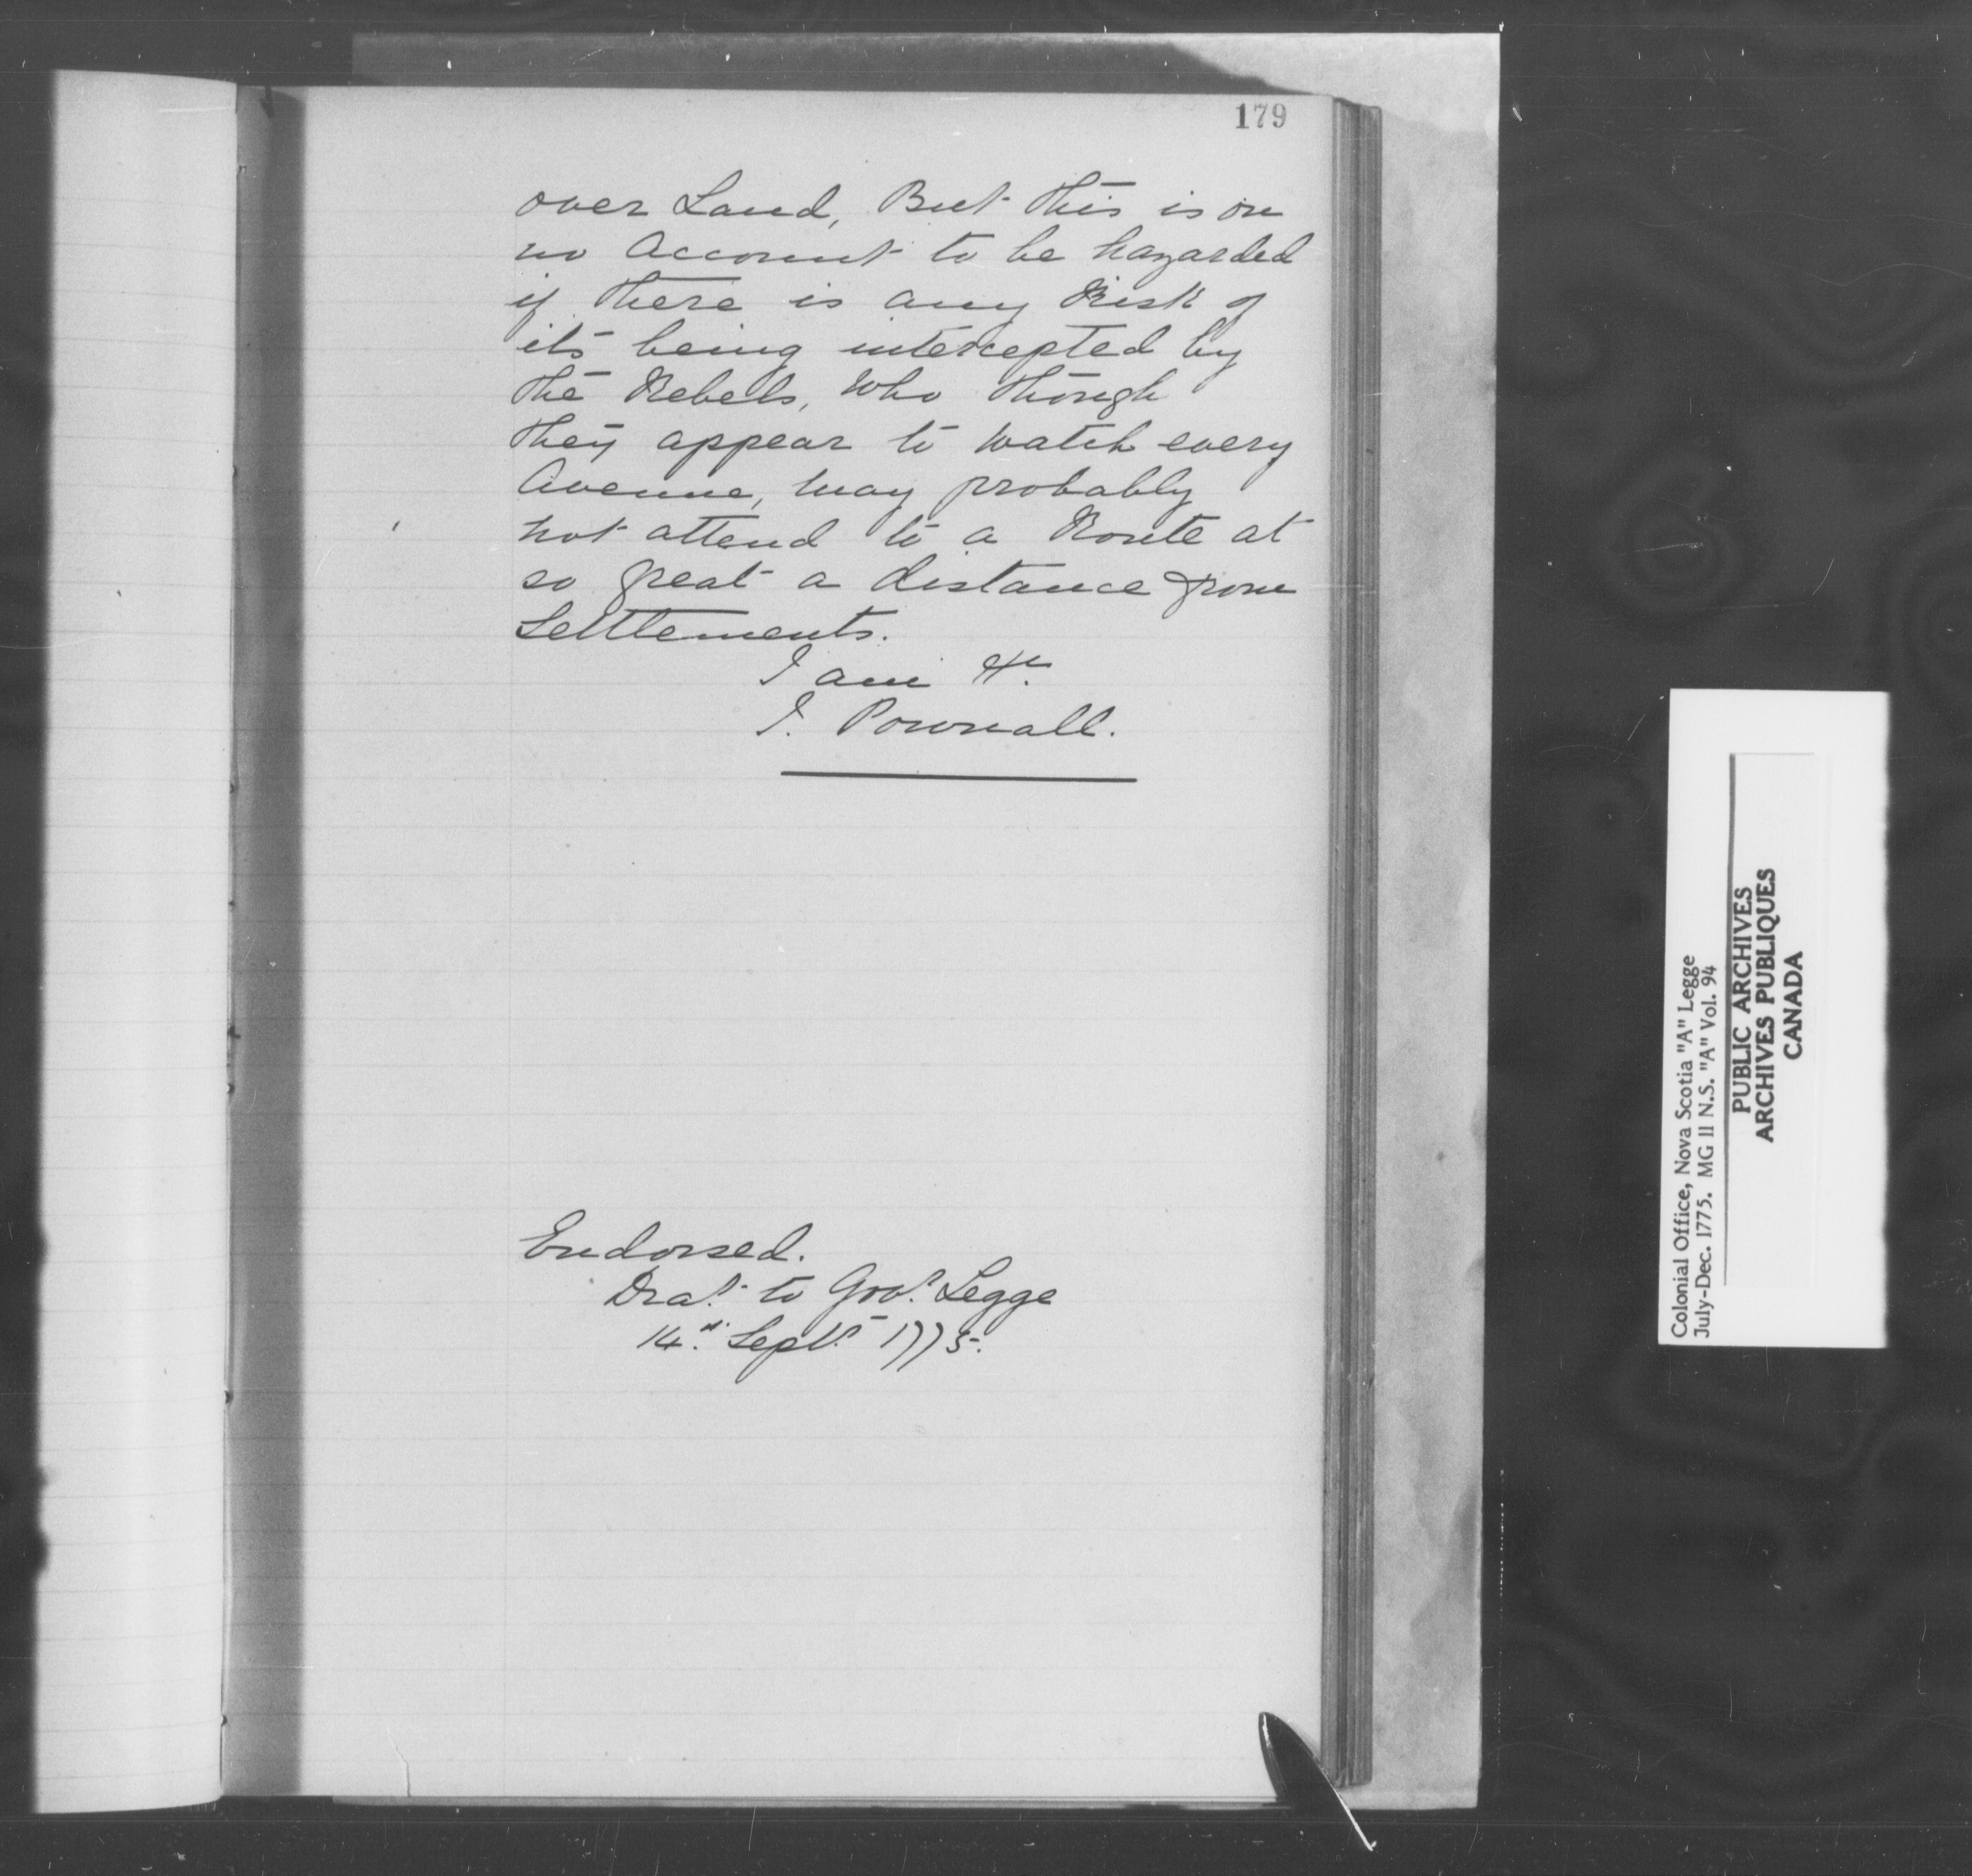 179
over Land, But this is on
no Account to be hazarded
if there is any Risk of
its being intercepted by
the Rebels, Who though
they appear to watch every
Avenue, may probably
not attend to a Route at
so great a distance from
Settlements.
I am &c.
J. Pownall.
Endorsed.
Dra.t to Gov.r Legge
14.th Sept.r 1775.
Colonial Office, Nova Scotia "A" Legge
July-Dec. 1775. MG 11 N.S. "A" Vol. 94
PUBLIC ARCHIVES
ARCHIVES PUBLIQUES
CANADA